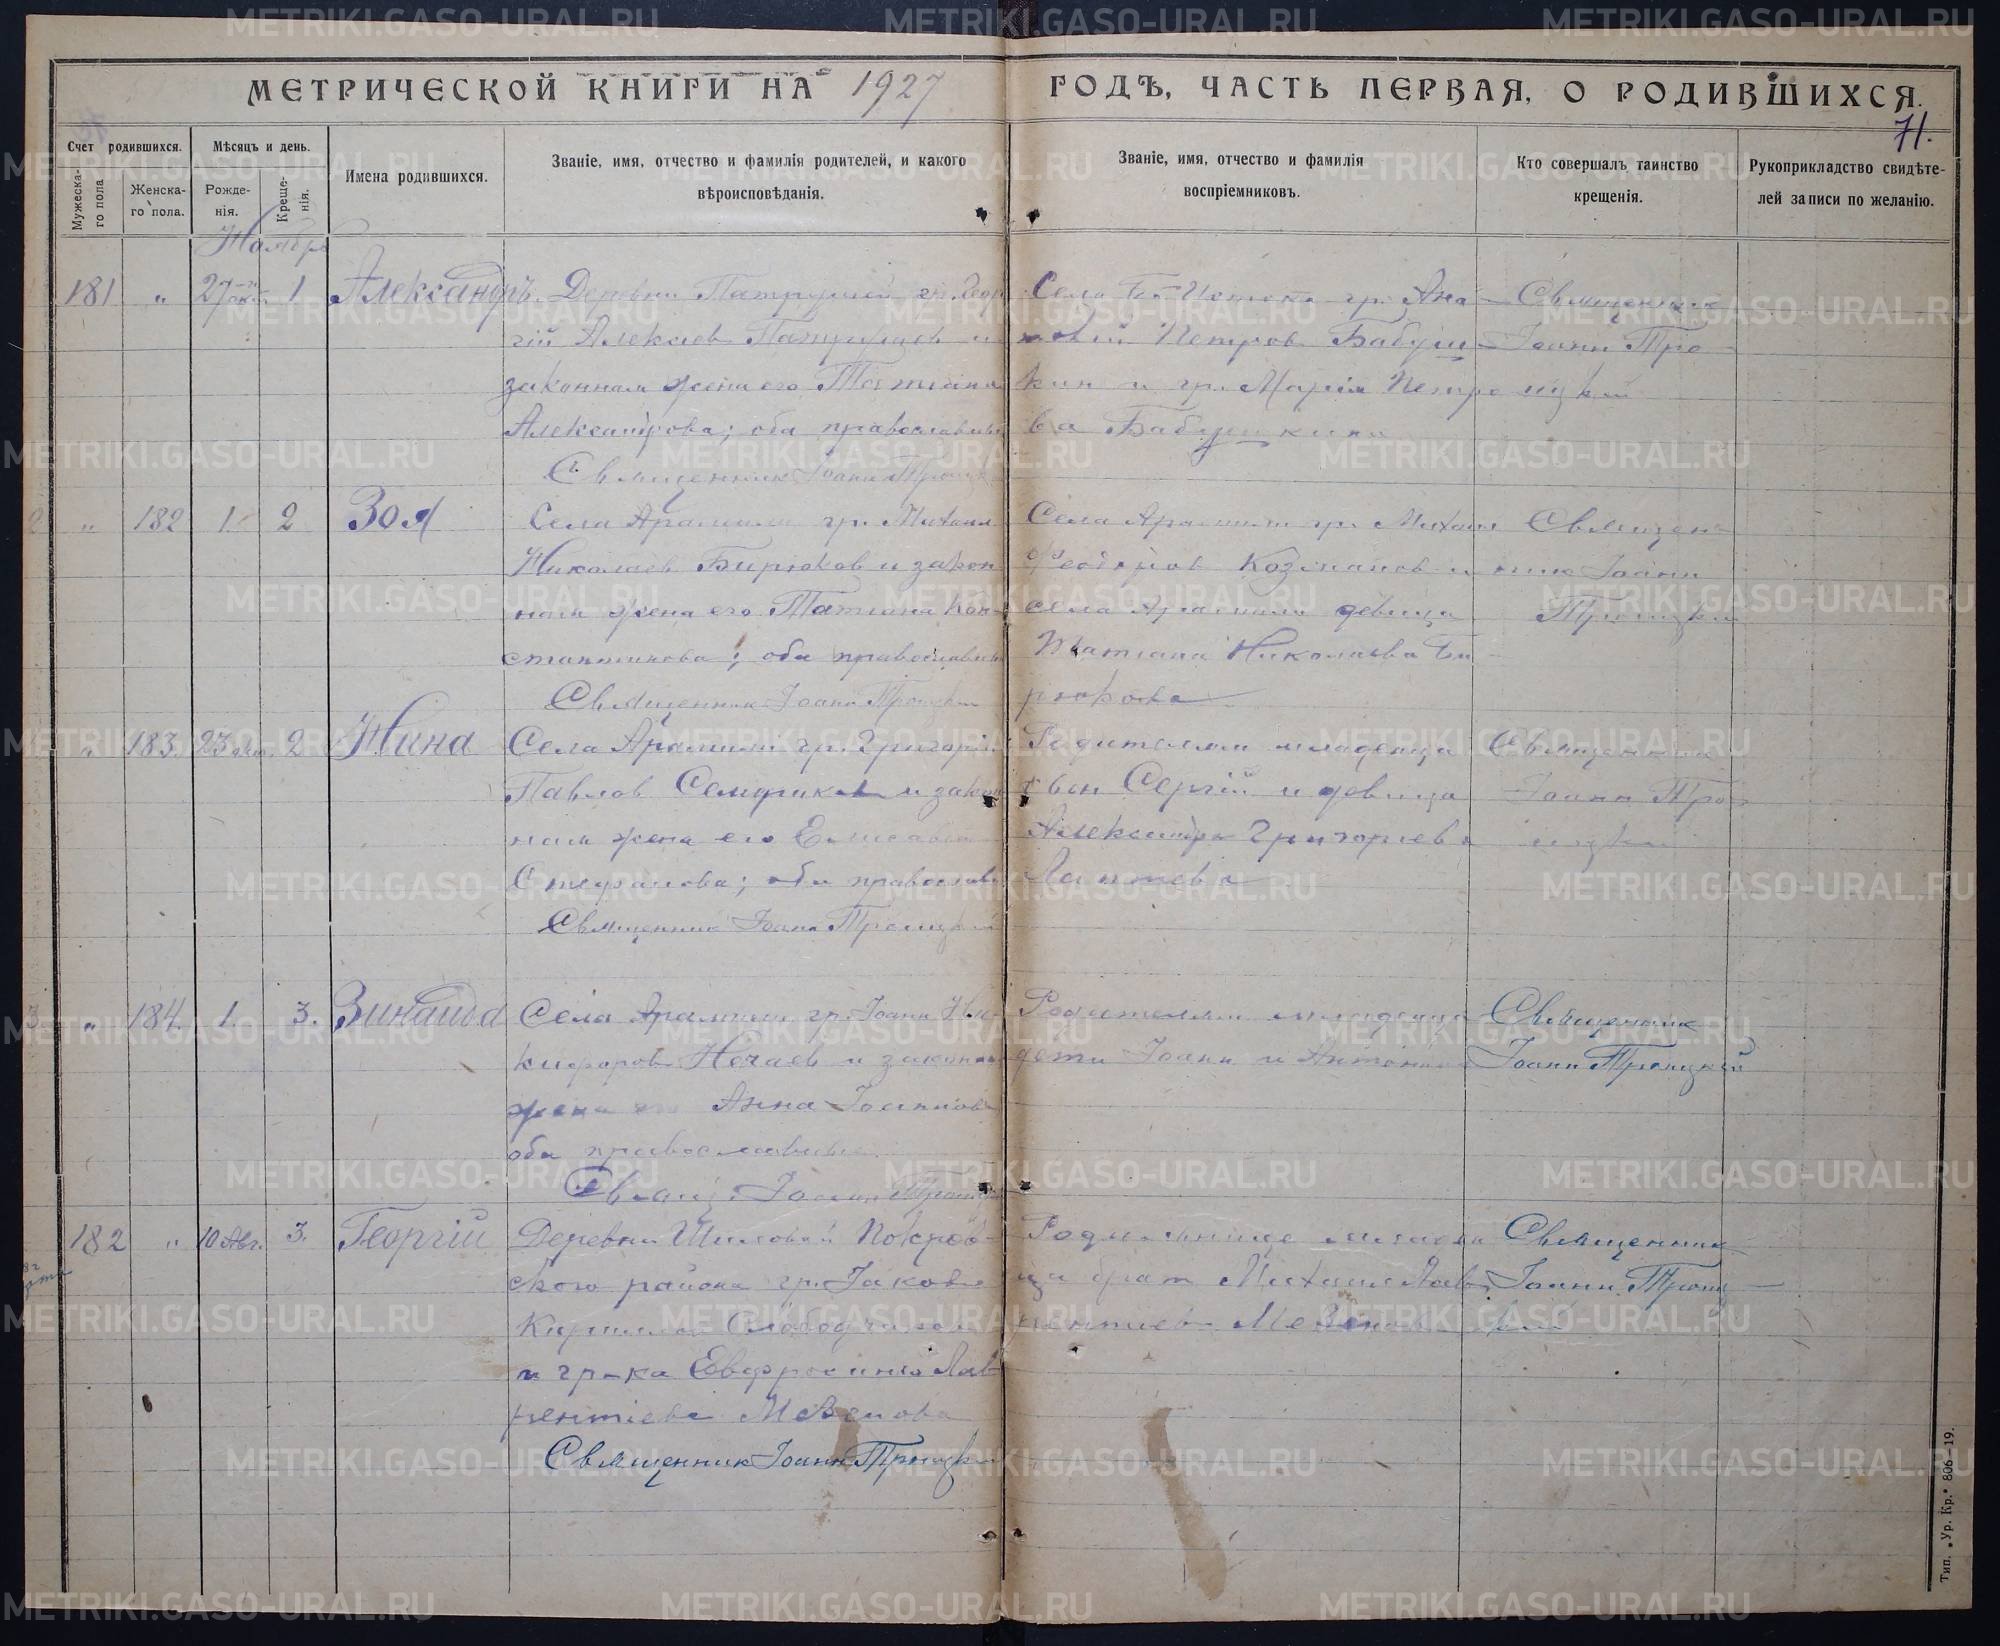 МЕТРИЧЕСКОЙ КНИГИ НА 1927 ГОДЪ, ЧАСТЬ ПЕРВАЯ, О РОДИВШИХСЯ.
71.
Счет родившихся.
Мужеска-го пола
Женска-го пола.
Мѣсяцъ и день.
Рожде-нія.
Креще-нія.
Имена родившихся.
Званіе, имя, отчество и фамилія родителей, и какого вѣроисповѣданія.
Званіе, имя, отчество и фамилія воспріемниковъ.
Кто совершалъ таинство крещенія.
Рукоприкладство свидѣте-лей записи по желанію.
Ноябрь
181 " 27 окт. 1 Александръ.
Деревни Патрушей гр. Геор
гій Алексіев Патрушев и
законная жена его Татіана
Александрова; оба православные
Священник Іоанн Троицкій
Села Истока гр. Ана
толій Петров Бабуш-
кин и гр. Марія Петро
ва Бабушкина
Священник
Іоанн Тро
ицкій
" 182 1. 2 Зоя
Села Арамили гр. Михаил
Николаев Бирюков и закон
ная жена его Татіана Кон-
стантинова; оба православные
Священник Іоанн Троицкій
Села Арамили гр. Михаил
Феодоров и
села Арамили девица
Татіана Николаева Би
рюкова
Священ
ник Іоанн
Троицкій
" 183. 23 окт. 2 Нина
Села Арамили гр. Григорій
Павлов и закон
ная жена его Елисавета
Стефанова; оба православные
Священник Іоанн Троицкій
Родителям младенца
свои Сергій и девица
Александра Григориева
Лаптева
Священник
Іоанн Тро
ицкій
" 184. 1. 3. Зинаида
Села Арамили гр. Іоанн Ни
кифоров Нечаев и законная
жена его Анна Іоаннова
оба православные.
Свящ. Іоанн Троицкій
Родителям младенца
дети Іоанн и Антонина
Священник
Іоанн Троицкій
182 " 10 Авг. 3. Георгій
Деревни Шиловой Покров-
ского района гр. Іаков
Кириллов Слободчиков
и гр-ка Евфросинія Лав
рентіева Мезенова
Священник Іоанн Троицкій
Родительнице младен
ца брат Михаил Лав
рентіев Мезенов
Священник
Іоанн Троиц
кій
Тип. „Ур. Кр." 806—19.
METRIKI.GASO-URAL.RU